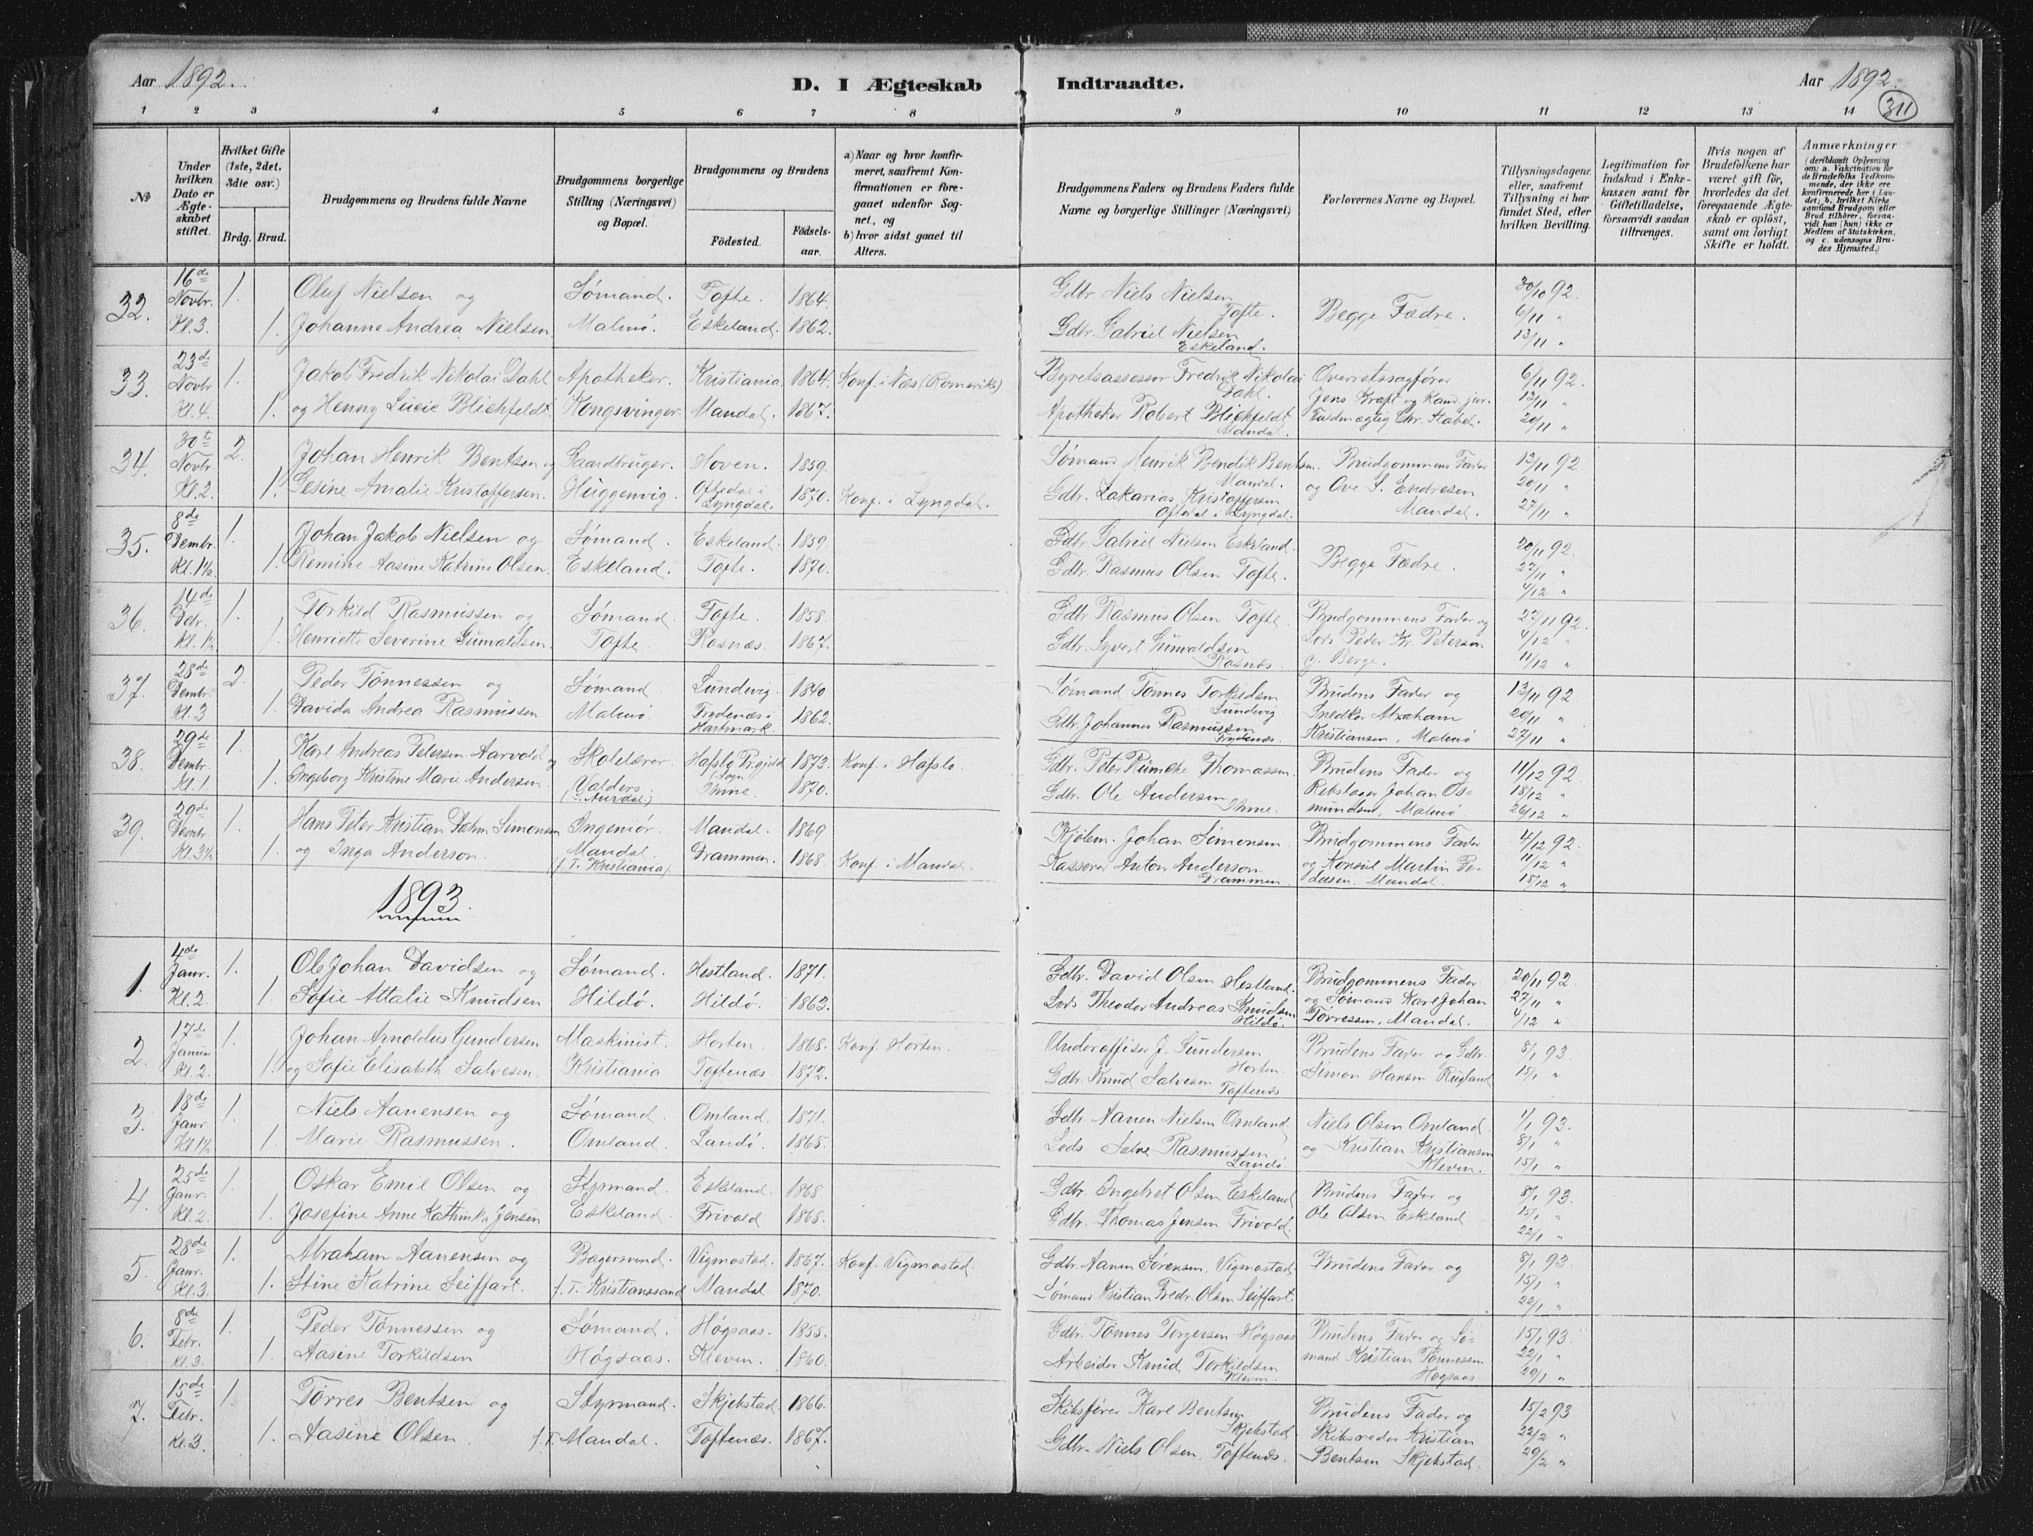 Aar 1892.
D. I Ægteskab Indtraadte.
Aar 1892.
311
1 2 3 4 5 6 7 8 9 10 11 12 13 14
No
Under hvilken Dato er Ægteskabet stiftet.
Hvilket Gifte (1ste, 2det, 3die osv.)
Brdg. Brud.
Brudgommens og Brudens fulde Navne
Brudgommens borgerlige Stilling (Næringsvei) og Bopæl.
Brudgommens og Brudens
Födested. Födselsaar.
a) Naar og hvor konfirmeret, saafremt Konfirmationen er foregaaet udenfor Sognet, og
b) hvor sidst gaaet til Alters.
Brudgommens Faders og Brudens Faders fulde Navne og borgerlige Stillinger (Næringsvei)
Forlovernes Navne og Bopæl.
Tillysningsdagene eller, saafremt Tillysning ei har fundet Sted, efter hvilken Bevilling.
Legitimation for Indskud i Enkekassen samt for Giftetilladelse, forsaavidt saadan tiltrænges.
Hvis nogen af Brudefolkene har været gift för, hvorledes da det foregaaende Ægteskab er oplöst, samt om lovligt Skifte er holdt.
Anmærkninger
32. 16de Novbr. Kl. 3. 1. Oluf Nielsen og Sømand. Tofte. 1864. Gdbr. Niels Nielsen Tofte. Begge Fædre. 30/10 92.
1. Johanne Andrea Nielsen Malmø. Eskeland. 1862. Gdbr. Gabriel Nielsen Eskeland. 6/11 " 13/11 "
33. 23de Novbr Kl. 4. 1. Jakob Fredrik Nikolai Dahl Apotheker. Kristiania. 1864. Konf. i Næs (Romerike) Byretsassessor Fredrik Nikolai Dahl. Overretssagfører 6/11 92.
1. og Henny Lucie Blichfeldt. Kongsvinger. Mandal. 1867. Apotheker Robert Blichfeldt Mandal. Jens Kraft og Kand. jur. Fuldmægtig Chr. Stabel. 13/11 " 20/11 "
34. 30te Novbr Kl. 2. 2. Johan Henrik Bentsen og Gaardbruger. Hoven. 1859 Sømand Henrik Bendik Bentsen. Mandal. Brudgommens Fader 13/11 92
1. Gesine Amalie Kristoffersen. Huggenvig. Oftedal i Lyngdal. 1870. Konf. i Lyngdal. Gdbr. Zakarias Kristoffersen Oftedal i Lyngdal. og Ove S. Endresen Mandal. 20/11 " 27/11 "
35. 8de Dembr. Kl. 1½. 1. Johan Jakob Nielsen og Sømand. Eskeland. 1859. Gdbr. Gabriel Nielsen Eskeland. Begge Fædre. 20/11 92.
1. Remine Aasine Katrine Olsen. Eskeland. Tofte. 1870. Gdbr. Rasmus Olsen Tofte. 27/11 " 4/12 "
36. 14de Dbr. 1. Torkild Rasmussen og Sømand. Tofte. 1858. Gdbr. Rasmus Olsen Tofte. Brudgommens Fader og 27/11 92.
1. Henriette Severine Gunvaldsen. Tofte. Rosnæs. 1867. Gdbr. Syvert Gunvaldsen Rosnæs. Lods Peder Kr. Petersen 4/12 " 11/12 "
37. 28de Dembr. Kl. 3 2. Peder Tønnessen og Sømand. Lundevig. 1840 Sømand Tønnes Torkildsen Lundevig Brudens Fader og 13/11 92.
1. Davida Andrea Rasmussen Malmø Frydenæs i Hartmark. 1862. Gdbr. Johannes Rasmussen Frydenæs. Snedker Abraham Kristiansen, Malmø 20/11 " 27/11 "
38. 29de Dembr. Kl. 1 1. Karl Andreas Petersen Aarvold og Skolelærer. Hafslo Prgjeld 1872. Konf. i Hafslo. Gdbr. Peter Thomassen. Brudens Fader og 11/12 92.
1. Ingeborg Kristine Marie Andersen. (Valders. S. Aurdal.) Ihme. 1870. Gdbr. Ole Andersen Ihme. Rebslager Johan Osmundsen, Malmø 18/12 " 26/12 "
39. 29de Dembr. Kl. 3½ 1. Hans Peter Kristian Dahm Simonsen Ingeniør. Mandal. 1869 Kjøbm. Johan Simonsen. Brudgommens Fader 4/12 92.
1. og Inga Anderson. Mandal (f. T. Kristiania). Drammen. 1868. Konf. i Mandal. Kasserer Anton Anderson Drammen og Konsul Martin Pedersen, Mandal. 11/12 " 18/12 "
1893
1. 4de Janr. Kl. 2. 1. Ole Johan Davidsen og Sømand. Hestland. 1871. Gdbr. David Olsen Hestland. Brudgommens Fader 20/11 92.
1. Sofie Attalie Knudsen Hildø. Hildø. 1863. Lods Theodor Andreas Knudsen Hildø. og Sømand Karl Johan Torressen, Mandal. 27/11 " 4/12 "
2. 17de Janua Kl. 2. 1. Johan Arnoldus Gundersen Maskinist. Horten. 1868. Konf. Horten. Underoffiser J. Gundersen Horten. Brudens Fader og Gdbr. 8/1 93.
1. og Sofie Elisabeth Salvesen. Kristiania Toftenæs. 1872. Gdbr. Knud Salvesen Toftenæs Simon Hansen Rugland 15/1 "
3. 18de Janr. Kl. 1½ 1. Niels Aanensen og Sømand. Omland. 1871. Gdbr. Aanen Nielsen Omland, Niels Olsen Omland 1/1 93.
1. Marie Rasmussen. Omland. Landø. 1865. Lods Salve Rasmussen Landø og Kristian Kristiansen Kleven. 8/1 " 15/1 "
4. 25de Janr. Kl. 2. 1. Oskar Emil Olsen og Styrmand. Eskeland. 1868. Gdbr. Ingebret Olsen Eskeland Brudens Fader og 8/1 93.
1. Josefine Anne Kathinka Jensen Eskeland. Frivold 1868. Gdbr. Thomas Jensen Frivold. Ole Olsen Eskeland. 15/1 " 22/1 "
5. 28de Janr. Kl. 3. 1. Abraham Aanensen og Bagersvend. Vigmostad. 1867. Konf. Vigmostad. Gdbr. Aanen Sørensen, Vigmostad. Brudens Fader og 8/1 93.
1. Stine Katrine Seiffart. f. T. Kristianssand Mandal. 1870. Sømand Kristian Fredr. Olsen Seiffart. 15/1 " 22/1 "
6. 8de Febr. Kl. 3. 1. Peder Tønnessen og Sømand. Høgsaas. 1855. Gdbr. Tønnes Torgersen Høgsaas Brudens Fader og Sø- 15/1 93.
1. Aasine Torkildsen Høgsaas. Kleven. 1860. Arbeider Knud Torkildsen Kleven. mand Kristian Tønnessen Høgsaas 22/1 " 29/1 "
7. 15de Febr. Kl. 3. 1. Tørres Bentsen og Styrmand. Skjebstad 1866. Skibsfører Karl Bentsen Skjebstad Brudens Fader og 15/2 93
1. Aasine Olsen. f. T. Mandal. Toftenæs. 1867. Gdbr. Niels Olsen, Toftenæs. Skibsreder Kristian Bentsen Skjebstad. 22/2 " 29/2 "